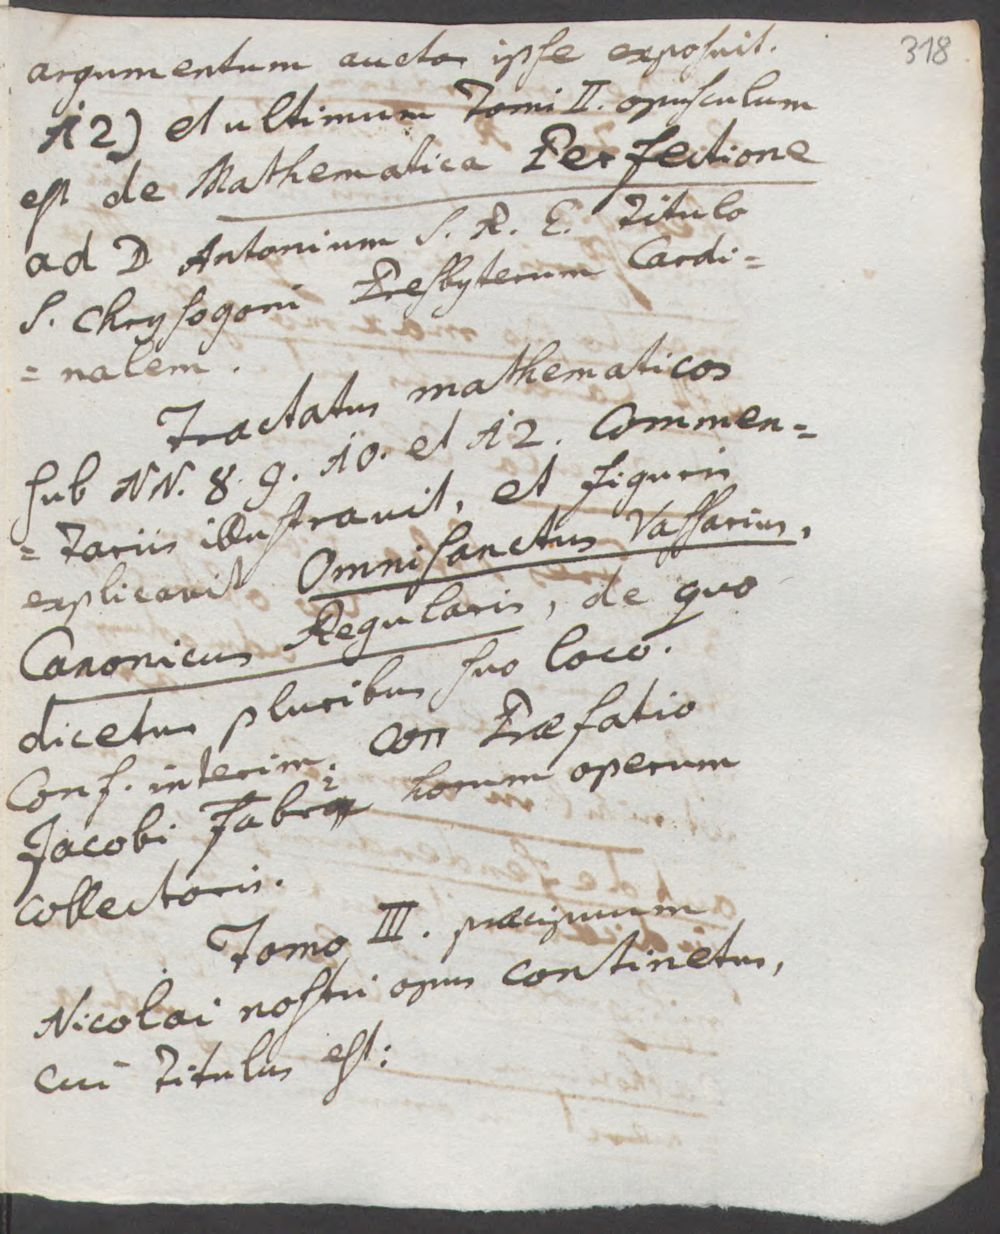 318
argumentum auctor ipse exposuit.
12) et ultimum Tomi II. opusculum
est de Mathematica Perfectione
ad D Antonium S. R. E. Titulo
S. Chrysogoni Presbyterum Cardi=
=nalem.
Tractatus mathematicos
sub NN. 8. 9. 10. et 12. Commen=
=tariis illustravit, et figuris
explicavit Omnisanctus Vassarius,
Canonicus Regularis, de quo
dicetur pluribus suo loco.
Conf. interim. Præfatio
Jacobi Fabri horum operum
collectoris.
Tomo III. præcipuum
Nicolai nostri opus continetur,
cui Titulus est: